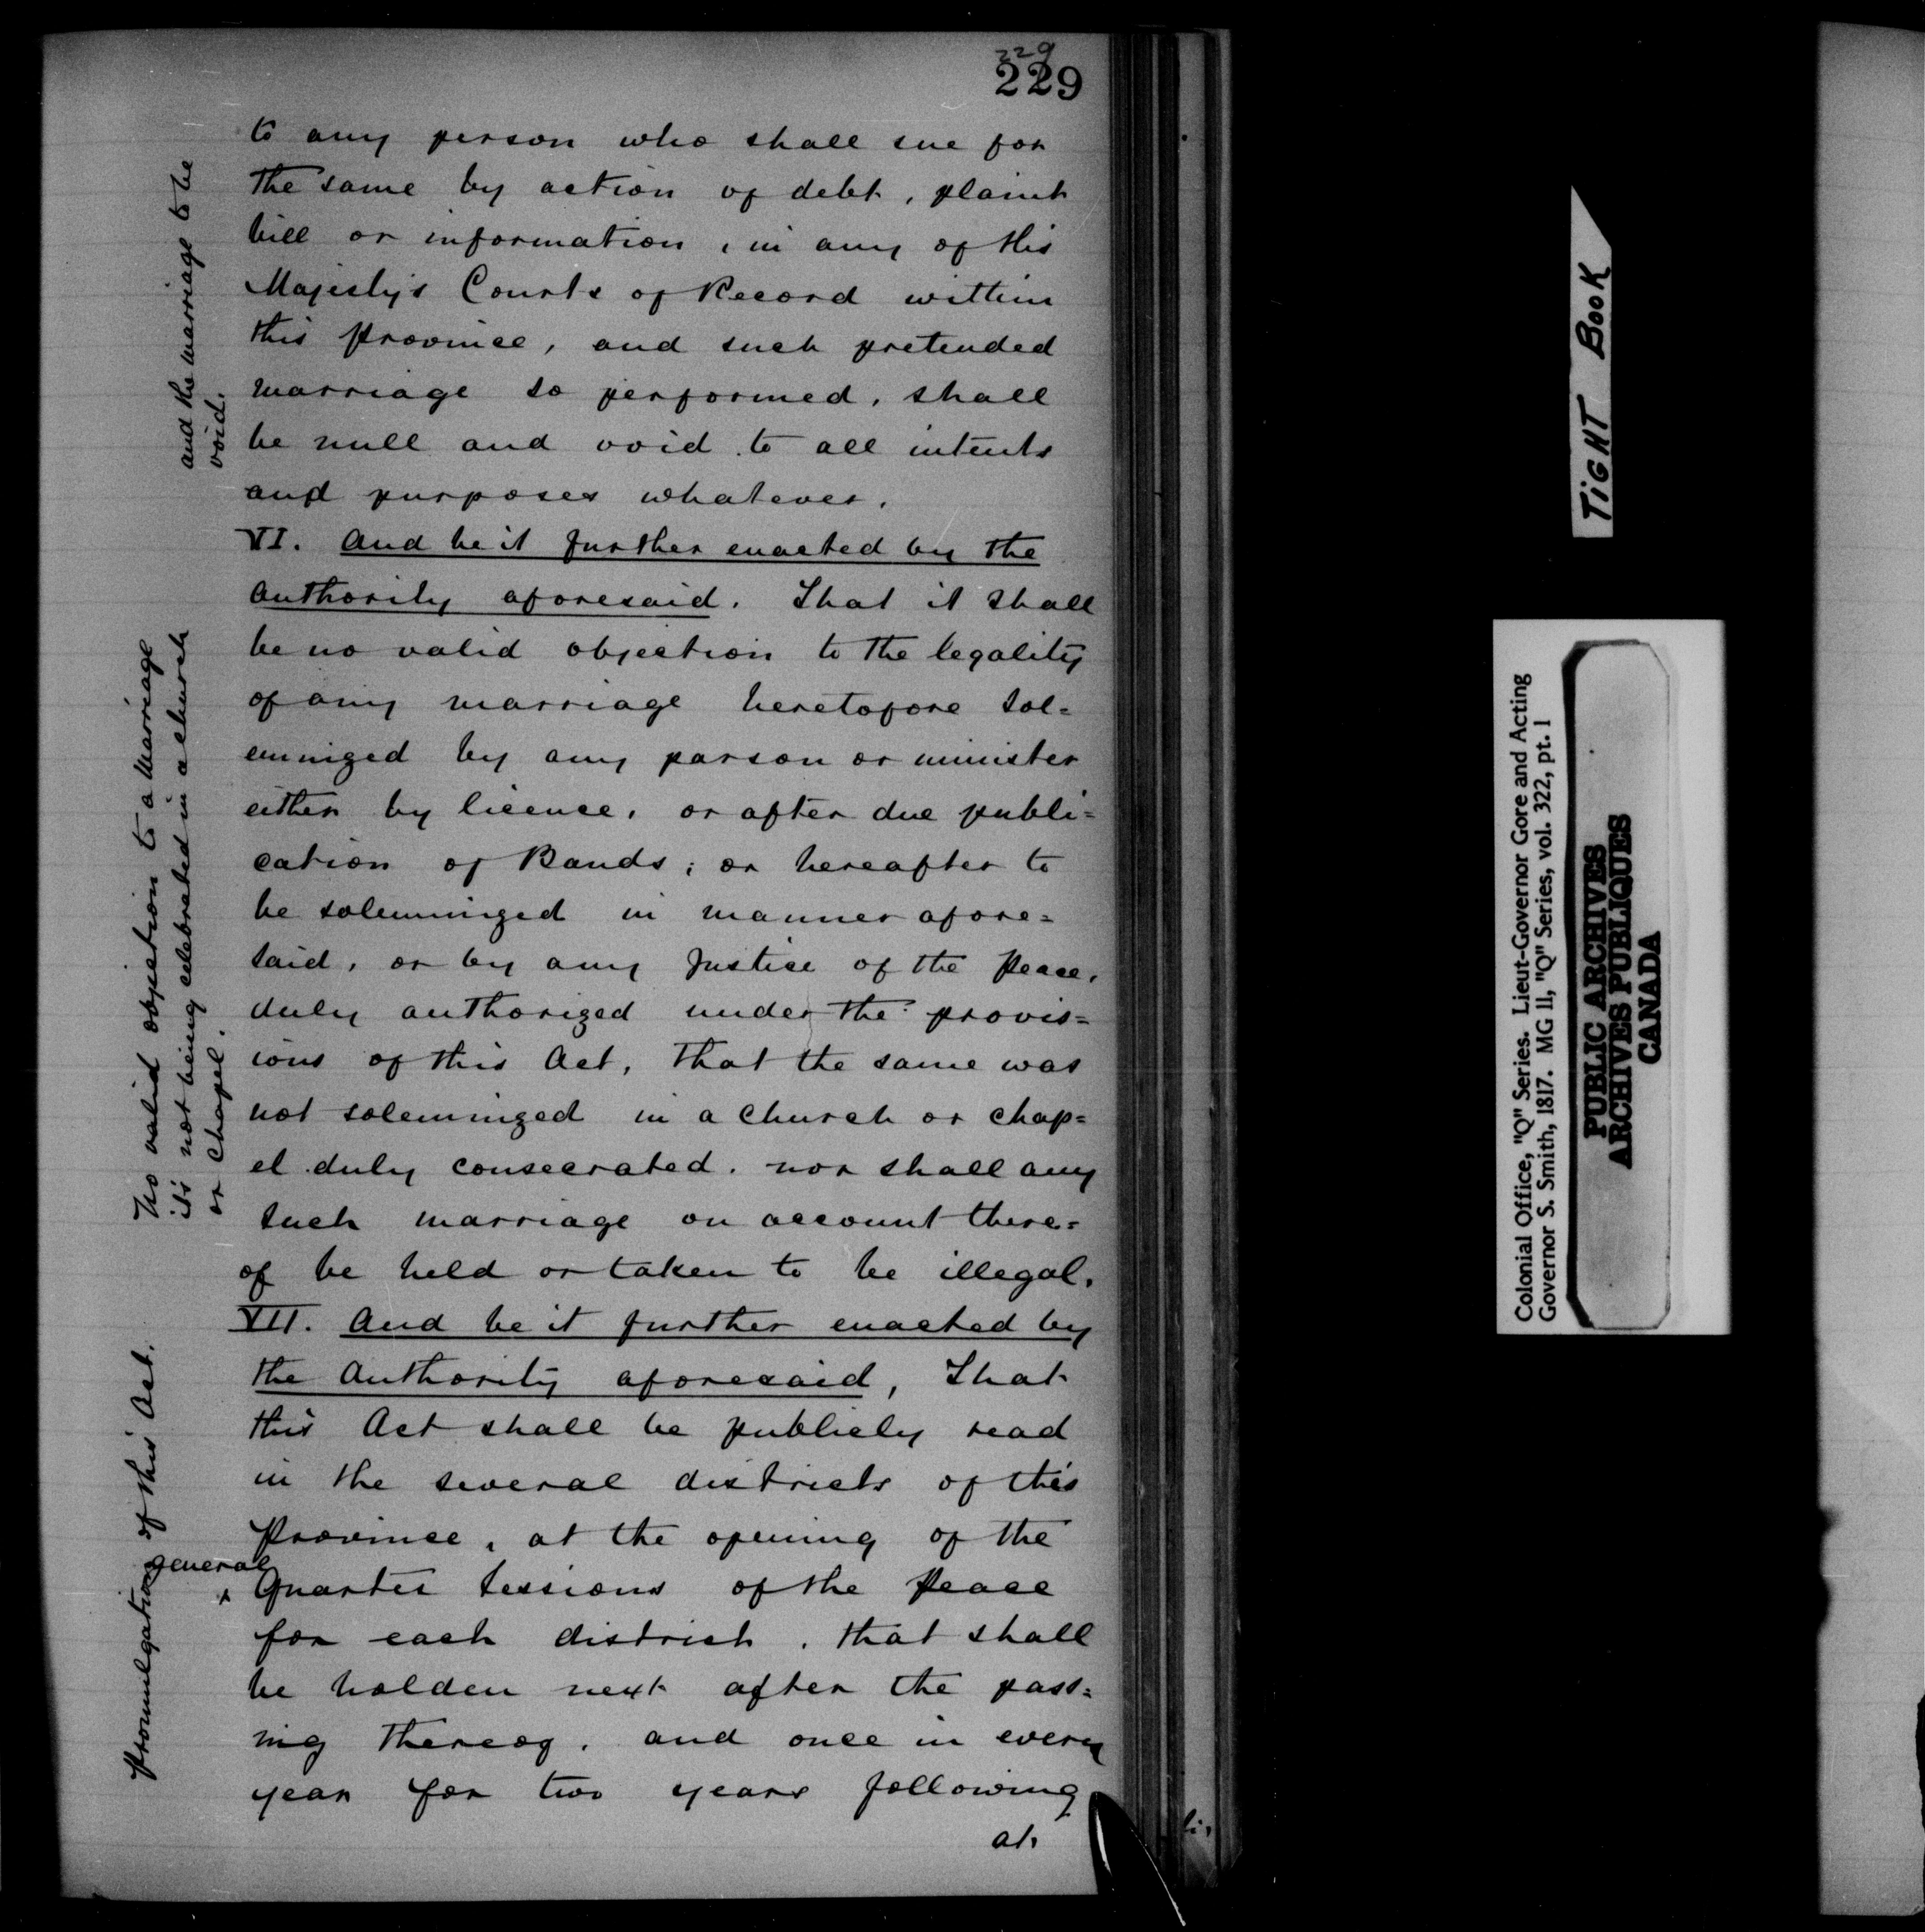 229
229
to any person who shall sue for
the same by action of debt, plaint
bill or information, in any of His
Majesty's Courts of Record within
this Province, and such pretended
marriage so performed, shall
be null and void to all intents
and purposes whatever.
and the marriage to be
void.
VI. And be it further enacted by the
authority aforesaid. That it shall
be no valid objection to the legality
of any marriage heretofore sol=
emnized by any parson or minister
either by licence, or after due publi=
cation of Bands; or hereafter to
be solemnized in manner afore=
said, or by any Justice of the Peace,
duly authorized under the provis=
ions of this Act, that the same was
not solemnized in a Church or Chap=
el duly consecrated. nor shall any
such marriage on account there=
of be held or taken to be illegal.
No valid objection to a Marriage
its not being celebrated in a church
or Chapel.
VII. And be it further enacted by
the Authority aforesaid, That
this Act shall be publicly read
in the several districts of this
Province, at the opening of the
general
x Quarter Sessions of the Peace
for each district, that shall
be holden next after the pass=
ing thereof, and once in every
year for two years following
at
Promulgation of this Act.
li,
TIGHT BOOK
Colonial Office, "Q" Series. Lieut-Governor Gore and Acting
Governor S. Smith, 1817. MG 11, "Q" Series, vol. 322, pt. 1
PUBLIC ARCHIVES
ARCHIVES PUBLIQUES
CANADA